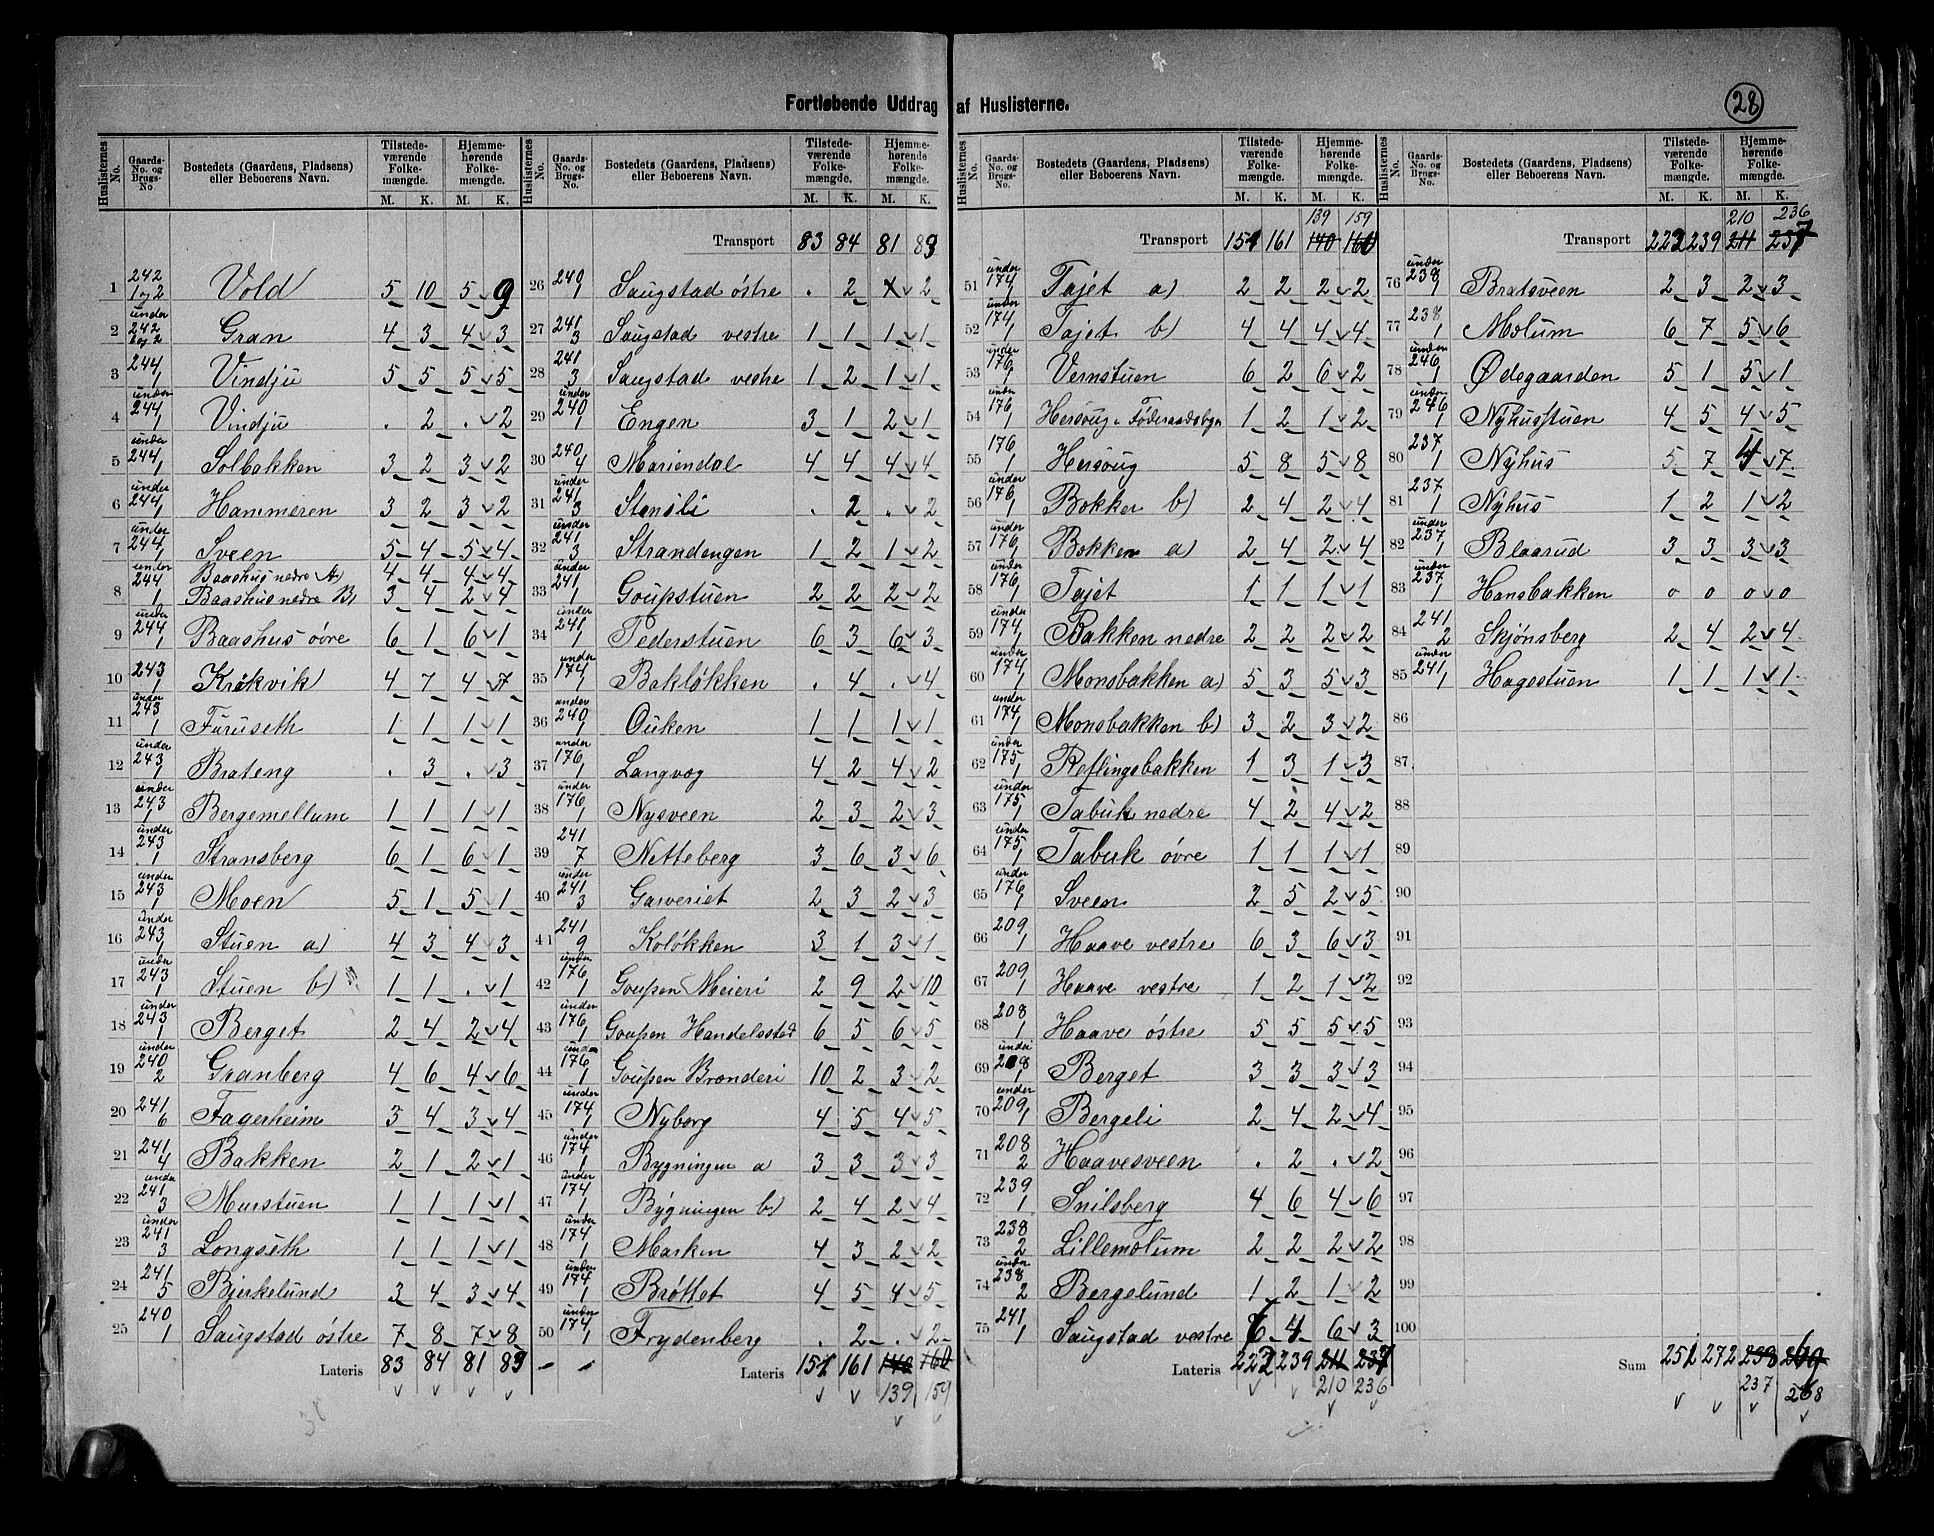 Fortløbende Uddrag af Huslisterne.
28
Huslisternes No. | Gaards-No. og Brugs-No. | Bostedets (Gaardens, Pladsens) eller Beboerens Navn. | Tilstedeværende Folkemængde. M. K. | Hjemmehørende Folkemængde. M. K.
1 242 1 og 2 Vold 5 10 5 9
2 under 242 1 og 2 Gran 4 3 4 3
3 244 1 Vindju 5 5 5 5
4 under 244 1 Vindju . 2 . 2
5 under 244 1 Solbakken 3 2 3 2
6 under 244 1 Hammeren 3 2 3 2
7 under 244 1 Sveen 5 4 5 4
8 under 244 1 Baashus nedre A) 4 4 4 4
Baashus nedre B) 3 4 2 4
9 under 244 1 Baashus øvre 6 1 6 1
10 243 1 Krøkvik 4 7 4 7
11 under 243 1 Furuseth 1 1 1 1
12 under 243 1 Brateng . 3 . 3
13 under 243 1 Bergemellum 1 1 1 1
14 under 243 1 Stransberg 6 1 6 1
15 under 243 1 Moen 5 1 5 1
16 under 243 1 Stuen a) 4 3 4 3
17 under 243 1 Stuen b) 1 1 . 1
18 under 243 1 Berget 2 4 2 4
19 under 240 2 Granberg 4 6 4 6
20 241 6 Fagerheim 3 4 3 4
21 241 4 Bakken 2 1 2 1
22 under 241 3 Murstuen 1 1 1 1
23 under 241 3 Longseth 1 1 1 1
24 241 5 Bjerkelund 3 4 3 4
25 240 1 Saugstad østre 7 8 7 8
Lateris 83 84 81 83
Transport 83 84 81 83
26 240 1 Saugstad østre . 2 . 2
27 241 3 Saugstad vestre 1 1 1 1
28 241 3 Saugstad vestre 1 2 1 1
29 under 240 1 Engen 3 1 2 1
30 240 4 Mariendal 4 4 4 4
31 under 241 3 Stensli . 2 . 2
32 under 241 3 Strandengen 1 2 1 2
33 under 241 1 Goupstuen 2 2 2 2
34 under 241 1 Pederstuen 6 3 6 3
35 under 174 1 Bakløkken . 4 . 4
36 under 240 1 Ouken 1 1 1 1
37 under 176 1 Langvæg 4 2 4 2
38 under 176 1 Nysveen 2 3 2 3
39 241 7 Netteberg 3 6 3 6
40 under 241 3 Garveriet 2 3 2 3
41 241 9 Koløkken 3 1 3 1
42 under 176 1 Goupen Meieri 2 9 2 10
43 under 176 1 Goupen Handelssted 6 5 6 5
44 under 176 1 Goupen Brænderi 10 2 3 2
45 under 174 1 Nyborg 4 5 4 5
46 under 174 1 Bygningen a 3 3 3 3
47 under 174 1 Bygningen b) 2 4 2 4
48 under 174 1 Marken 4 3 2 2
49 under 174 1 Brøttet 4 5 4 5
50 under 174 1 Frydenberg . 2 . 2
Lateris 151 161 140 160
139 159
139 159
Transport 151 161 140 160
51 under 174 1 Tajet a) 2 2 2 2
52 under 174 1 Tajet b) 4 4 4 4
53 under 176 1 Vernstuen 6 2 6 2
54 under 176 1 Hersoug Føderaadsbyg 1 2 1 2
55 176 1 Hersoug 5 8 5 8
56 under 176 1 Bakken b) 2 4 2 4
57 under 176 1 Bakken a) 2 4 2 4
58 under 176 1 Tajet 1 1 1 1
59 under 174 1 Bakken nedre 2 2 2 2
60 under 174 1 Monsbakken a) 5 3 5 3
61 under 174 1 Monsbakken b) 3 2 3 2
62 under 175 1 Reflingsbakken 1 3 1 3
63 under 175 1 Tabuk nedre 4 2 4 2
64 under 175 1 Tabuk øvre 1 1 1 1
65 under 176 1 Sveen 2 5 2 5
66 209 1 Haave vestre 6 3 6 3
67 209 1 Haave vestre 1 2 1 2
68 208 1 Haave østre 5 5 5 5
69 under 208 1 Berget 3 3 3 3
70 under 209 1 Bergeli 2 4 2 4
71 208 2 Haavesveen . 2 . 2
72 239 1 Snilsberg 4 6 4 6
73 238 2 Lillemolum 2 2 2 2
74 under 238 2 Bergslund 1 2 1 2
75 241 1 Saugstad vestre 6 4 6 3
Lateris 222 239 211 237
210 236
210 236
Transport 222 239 211 237
76 under 238 1 Bratsveen 2 3 2 3
77 238 1 Molum 6 7 5 6
78 under 246 1 Ødegaarden 5 1 5 1
79 under 246 1 Nyhusstuen 4 5 4 5
80 237 1 Nyhus 5 7 4 7
81 237 1 Nyhus 1 2 1 2
82 under 237 1 Blaarud 3 3 3 3
83 under 237 1 Hansbakken 0 0 0 0
84 241 2 Skjønsberg 2 4 2 4
85 under 241 1 Hagestuen 1 1 1 1
86
87
88
89
90
91
92
93
94
95
96
97
98
99
100
Sum 251 272 238 269
237 268